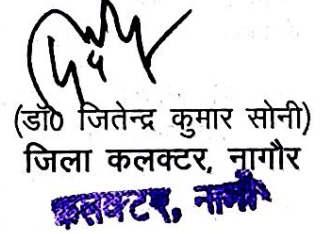 (डॉ0 जितेन्द्र कुमार सोनी)
जिला कलक्टर, नागौर
कलक्टर, नागौर